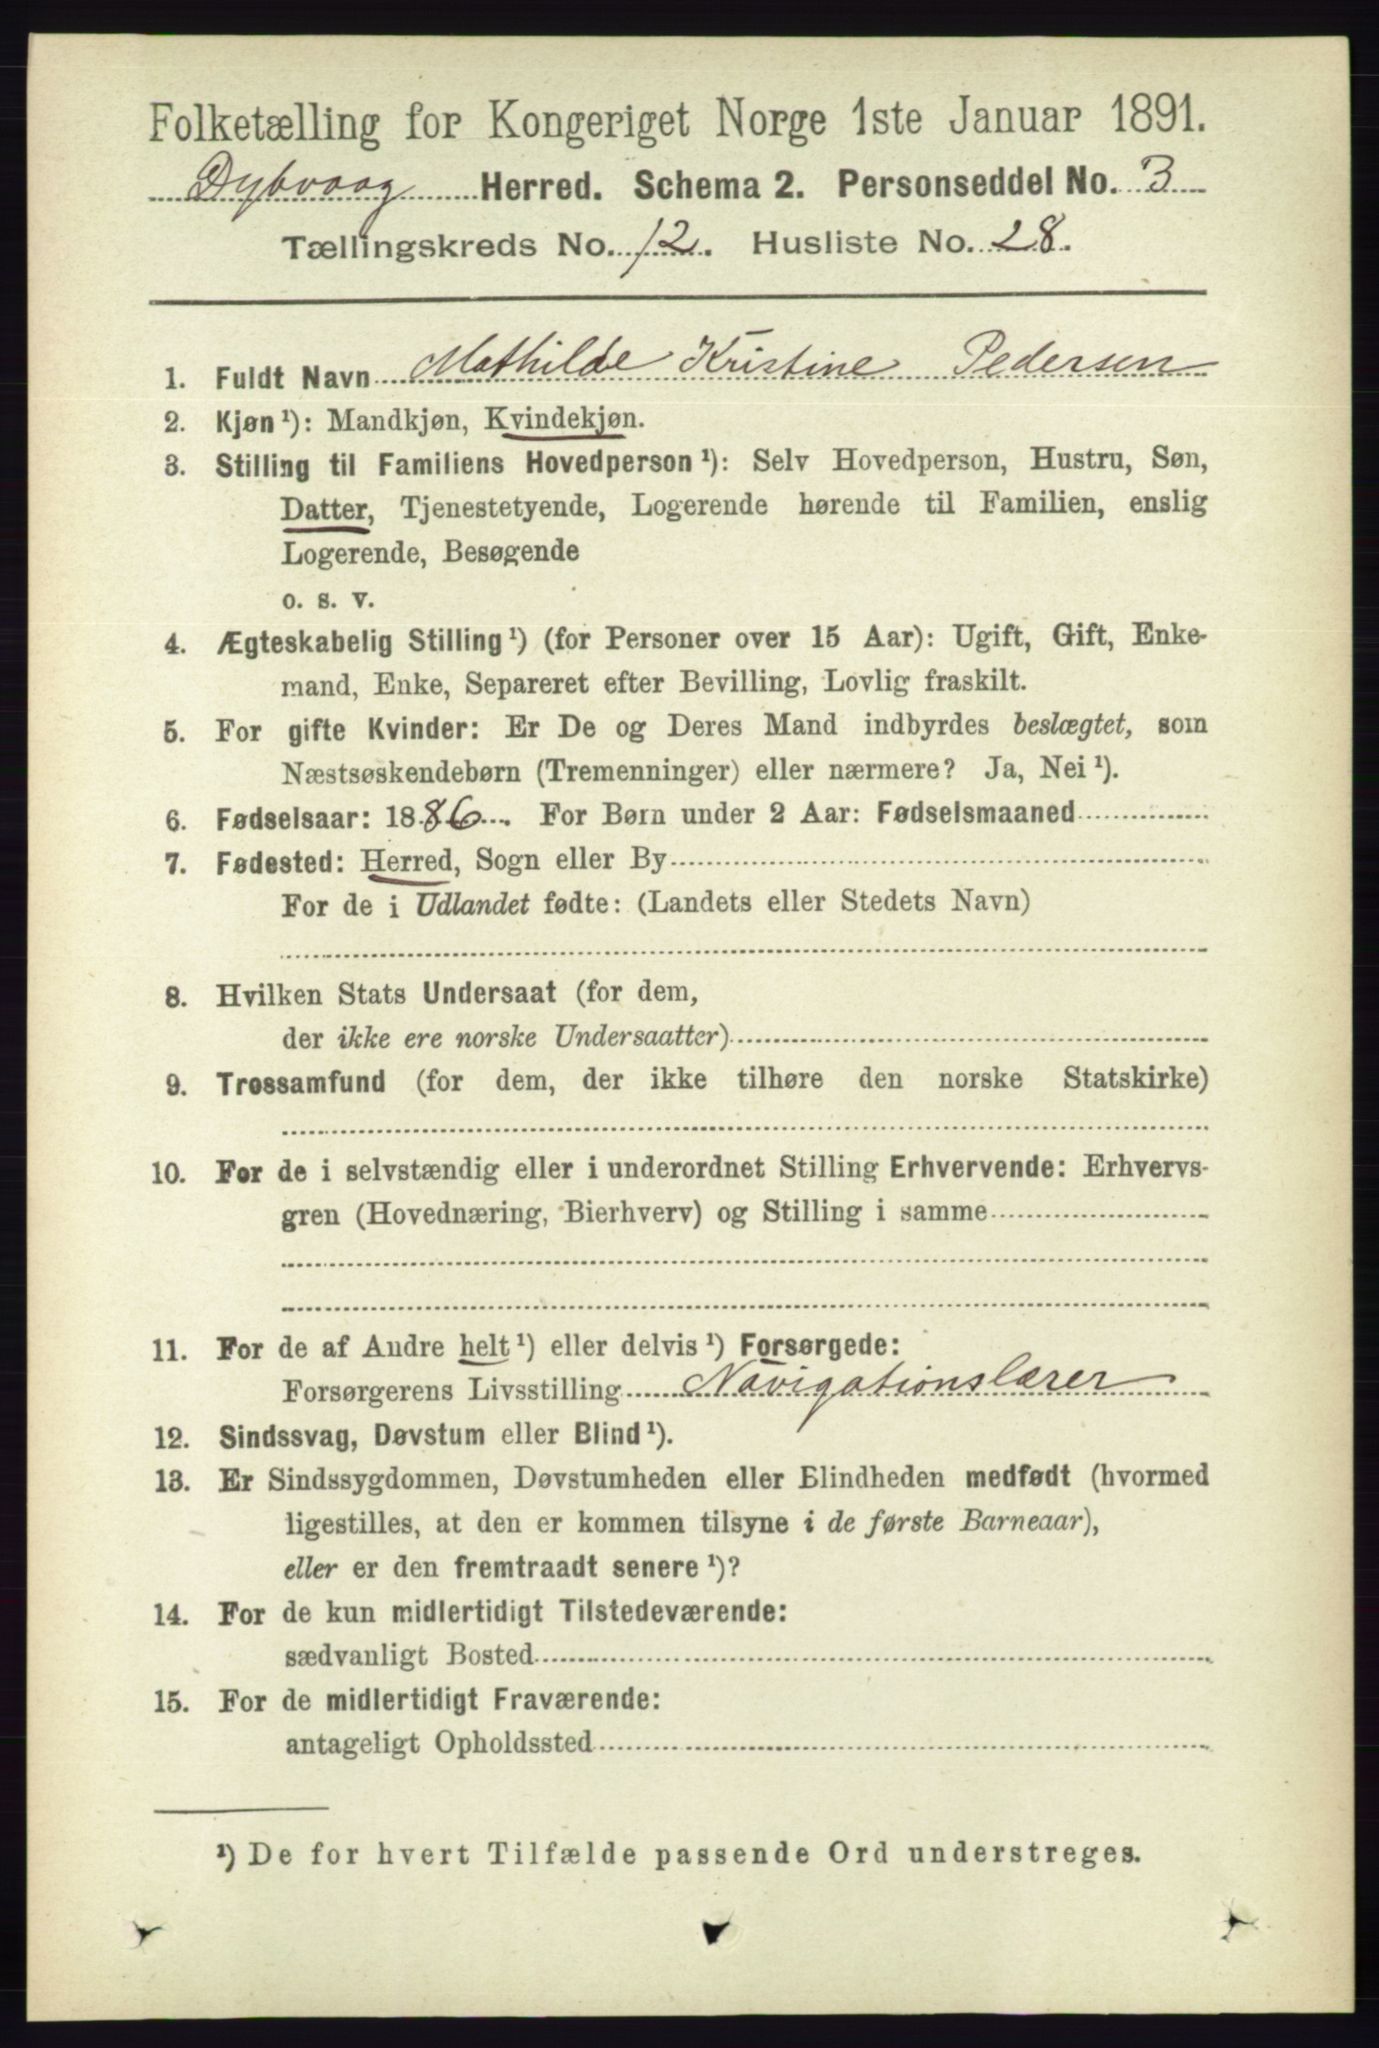 Folketælling for Kongeriget Norge 1ste Januar 1891.
Dybvaag Herred. Schema 2. Personseddel No. 3
Tællingskreds No. 12. Husliste No. 28.
1. Fuldt Navn Mathilde Kristine Pedersen
2. Kjøn¹): Mandkjøn, Kvindekjøn.
3. Stilling til Familiens Hovedperson¹): Selv Hovedperson, Hustru, Søn,
Datter, Tjenestetyende, Logerende hørende til Familien, enslig
Logerende, Besøgende
o. s. v.
4. Ægteskabelig Stilling¹) (for Personer over 15 Aar): Ugift, Gift, Enke-
mand, Enke, Separeret efter Bevilling, Lovlig fraskilt.
5. For gifte Kvinder: Er De og Deres Mand indbyrdes beslægtet, som
Næstsøskendebørn (Tremenninger) eller nærmere? Ja, Nei¹).
6. Fødselsaar: 1886. For Børn under 2 Aar: Fødselsmaaned
7. Fødested: Herred, Sogn eller By
For de i Udlandet fødte: (Landets eller Stedets Navn)
8. Hvilken Stats Undersaat (for dem,
der ikke ere norske Undersaatter)
9. Trossamfund (for dem, der ikke tilhøre den norske Statskirke)
10. For de i selvstændig eller i underordnet Stilling Erhvervende: Erhvervs-
gren (Hovednæring, Bierhverv) og Stilling i samme
11. For de af Andre helt¹) eller delvis¹) Forsørgede:
Forsørgerens Livsstilling Navigationslærer
12. Sindssvag, Døvstum eller Blind¹).
13. Er Sindssygdommen, Døvstumheden eller Blindheden medfødt (hvormed
ligestilles, at den er kommen tilsyne i de første Barneaar),
eller er den fremtraadt senere¹)?
14. For de kun midlertidigt Tilstedeværende:
sædvanligt Bosted
15. For de midlertidigt Fraværende:
antageligt Opholdssted
¹) De for hvert Tilfælde passende Ord understreges.